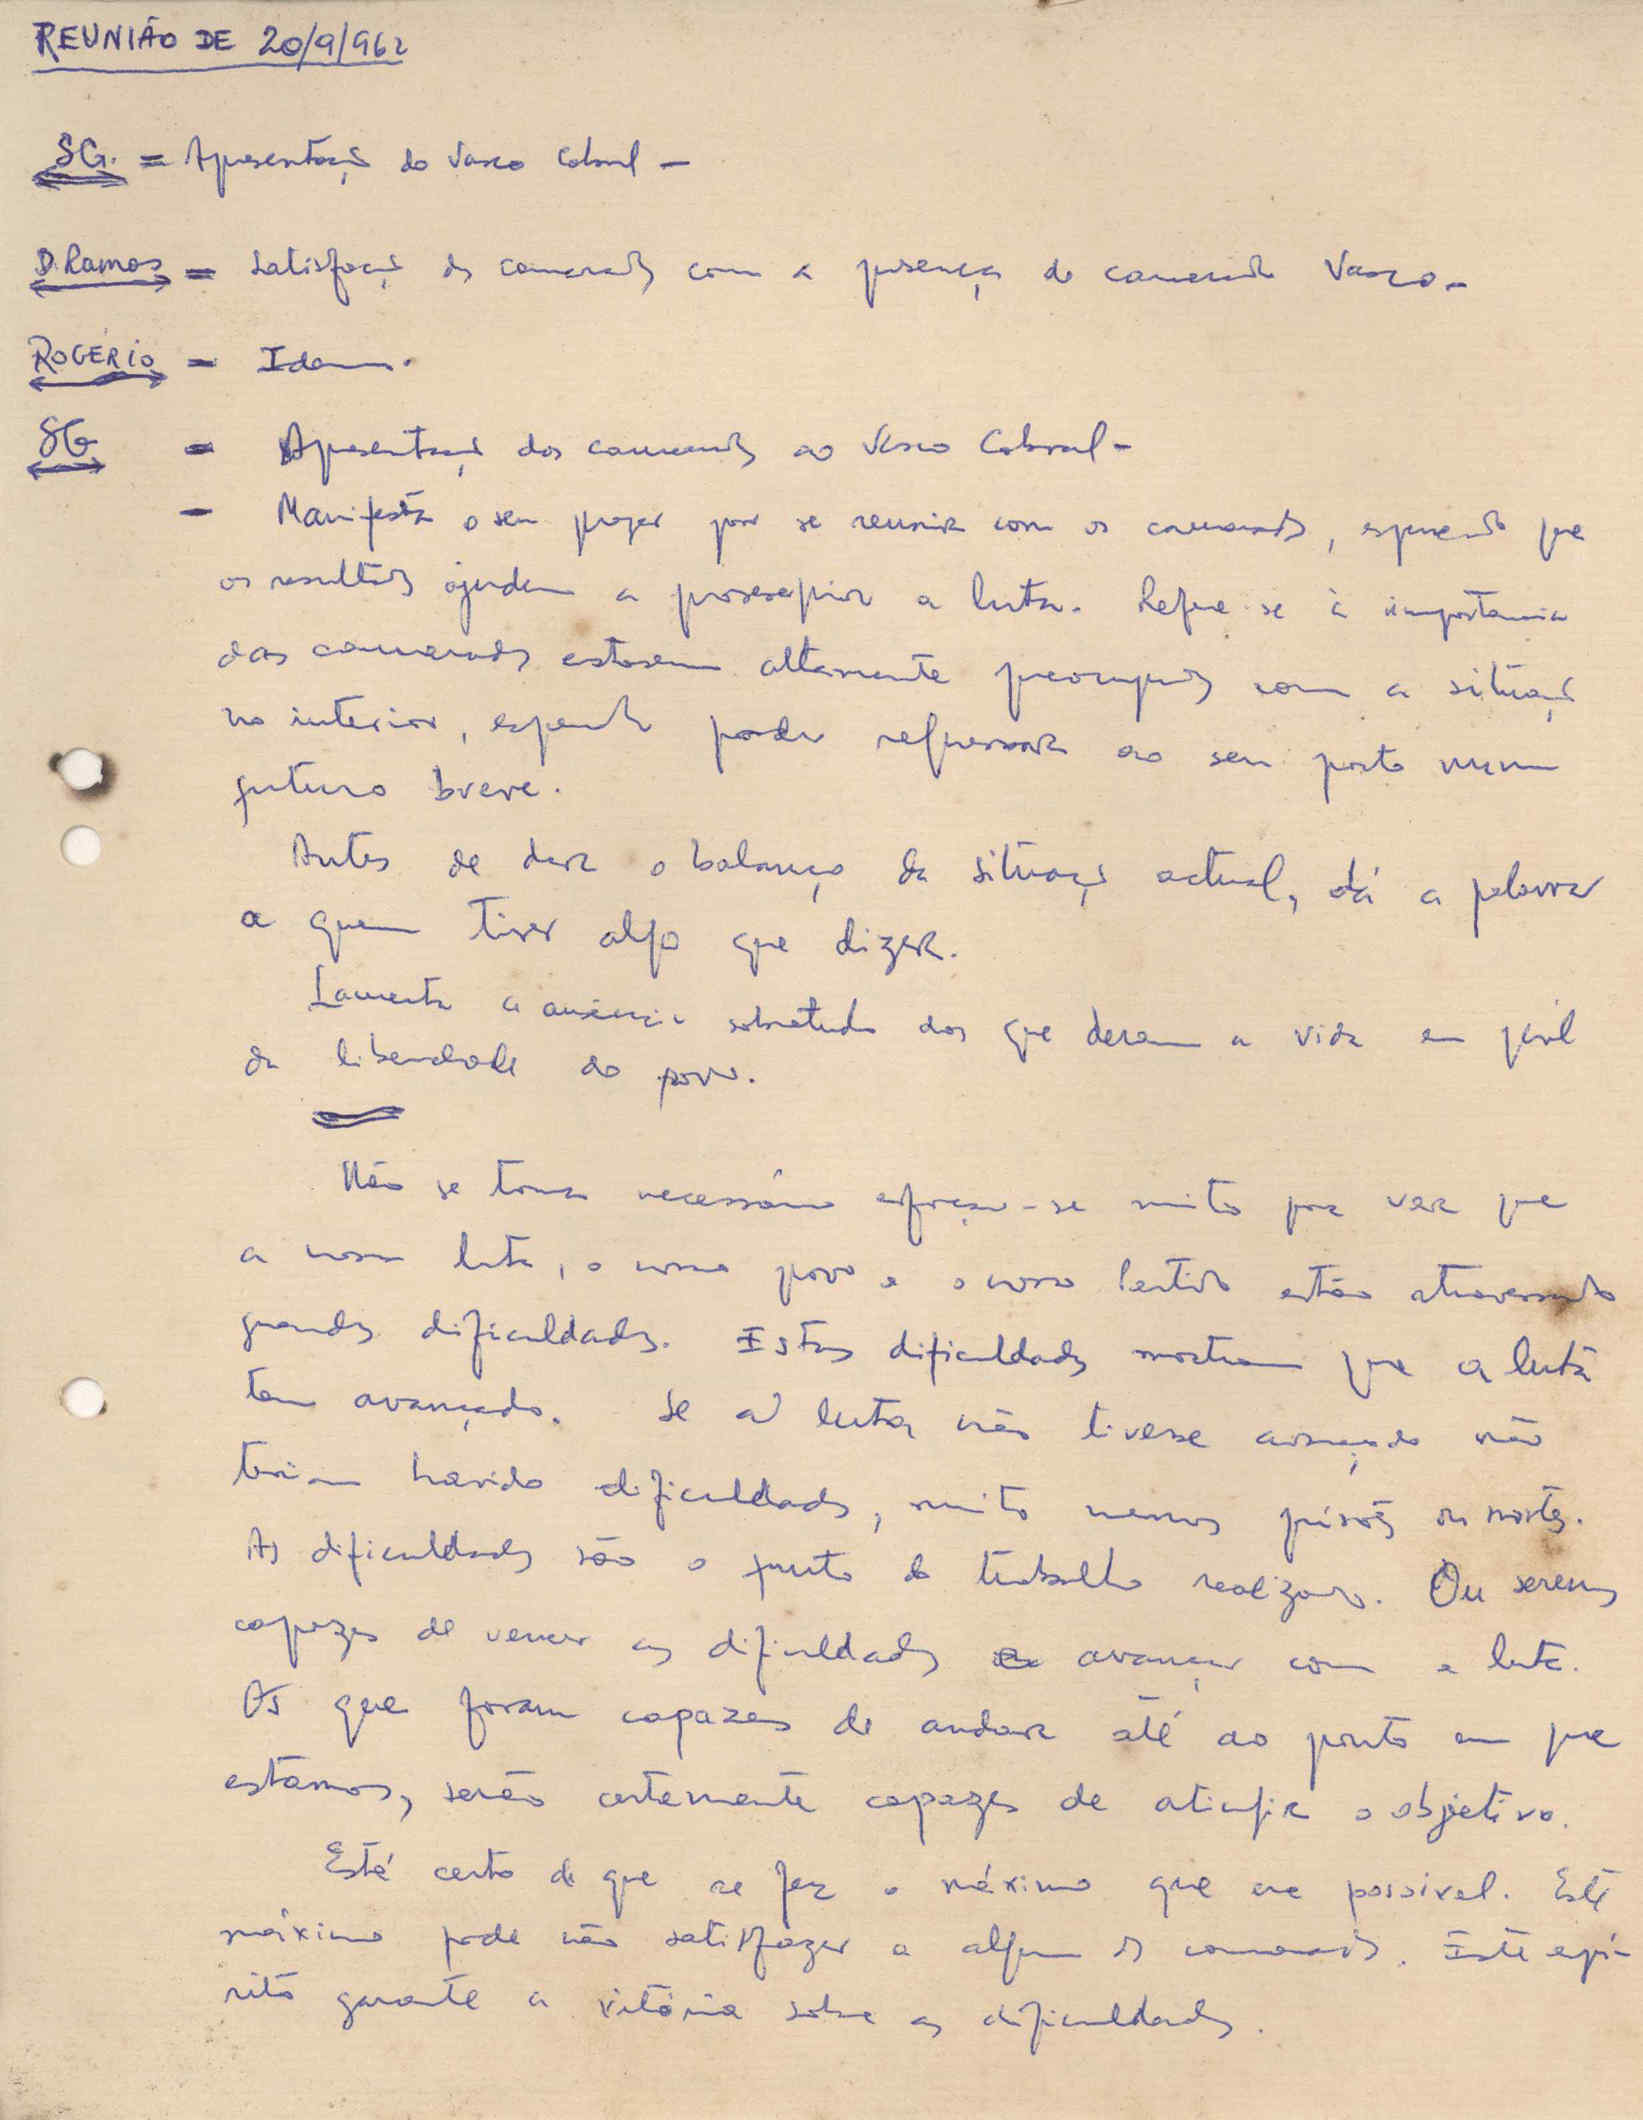 REUNIÃO DE 20/9/962
SG. = Apresentação do Vasco Cabral -
D. Ramos = Satisfação dos camaradas com a presença do camarada Vasco.-
ROGÉRIO = Idem.
SG = Apresentação dos camaradas ao Vasco Cabral -
- Manifesta o seu prazer por se reunir com os camaradas, esperando que
os resultados ajudem a prosseguir a luta. Refere-se à importancia
dos camaradas estarem altamente preocupados com a situação
no interior, esperando poder regressar ao seu posto num
futuro breve.
Antes de dar o balanço da situação actual, dá a palavra
a quem tiver algo que dizer.
Lamenta a ausência sobretudo dos que deram a vida em
da liberdade do povo.
Não se torna necessário esforçar-se muito por ver que
a nossa luta, o nosso povo e o nosso Partido estão atravessando
grandes dificuldades. Estas dificuldades mostram que a luta
tem avançado. Se a luta não tivesse avançado não
teriam havido dificuldades, muito menos prisões ou mortes.
As dificuldades são o fruto do trabalho realizado. Ou seremos
capazes de vencer as dificuldades e avançar com a luta.
Os que foram capazes de andar até ao ponto em que
estamos, serão certamente capazes de atingir o objetivo.
Está certo de que se fez o máximo que era possivel. Este
máximo pode não satisfazer a algum dos camaradas. Este espí-
rito garante a vitória sobre as dificuldades.